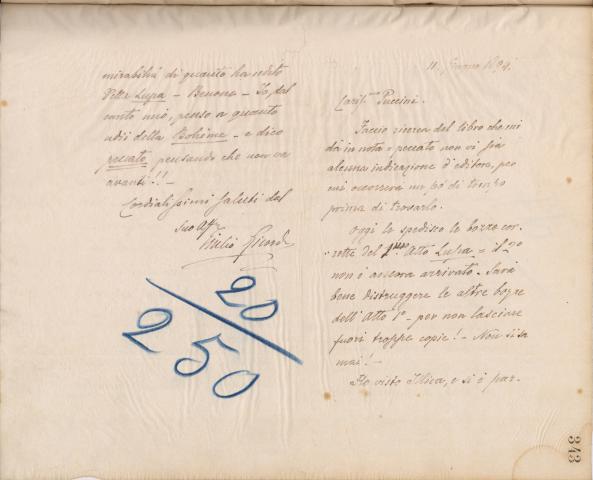 11. Giugno 1894.
Cariss.mo Puccini.
Faccio ricerca del libro che mi
dà in nota = peccato non vi sia
alcuna indicazione d'editore, per
cui occorrerà un pò di tempo
prima di trovarlo.
Oggi le spedisco le bozze cor-
rette del 1mo Atto Lupa = il 2o
non è ancora arrivato. Sarà
bene distruggere le altre bozze
dell'Atto 1o - per non lasciare
fuori troppe copie! - Non si sa
mai! -
Ho visto Illica, e si è par-
mirabilia di quanto ha udito
della Lupa - Benone - Io, dal
canto mio, penso a quanto
udii della Bohème - e dico
peccato, pensando che non va
avanti!! -
Cordialissimi saluti del
Suo Aff.
Giulio Ricordi
20
250
343